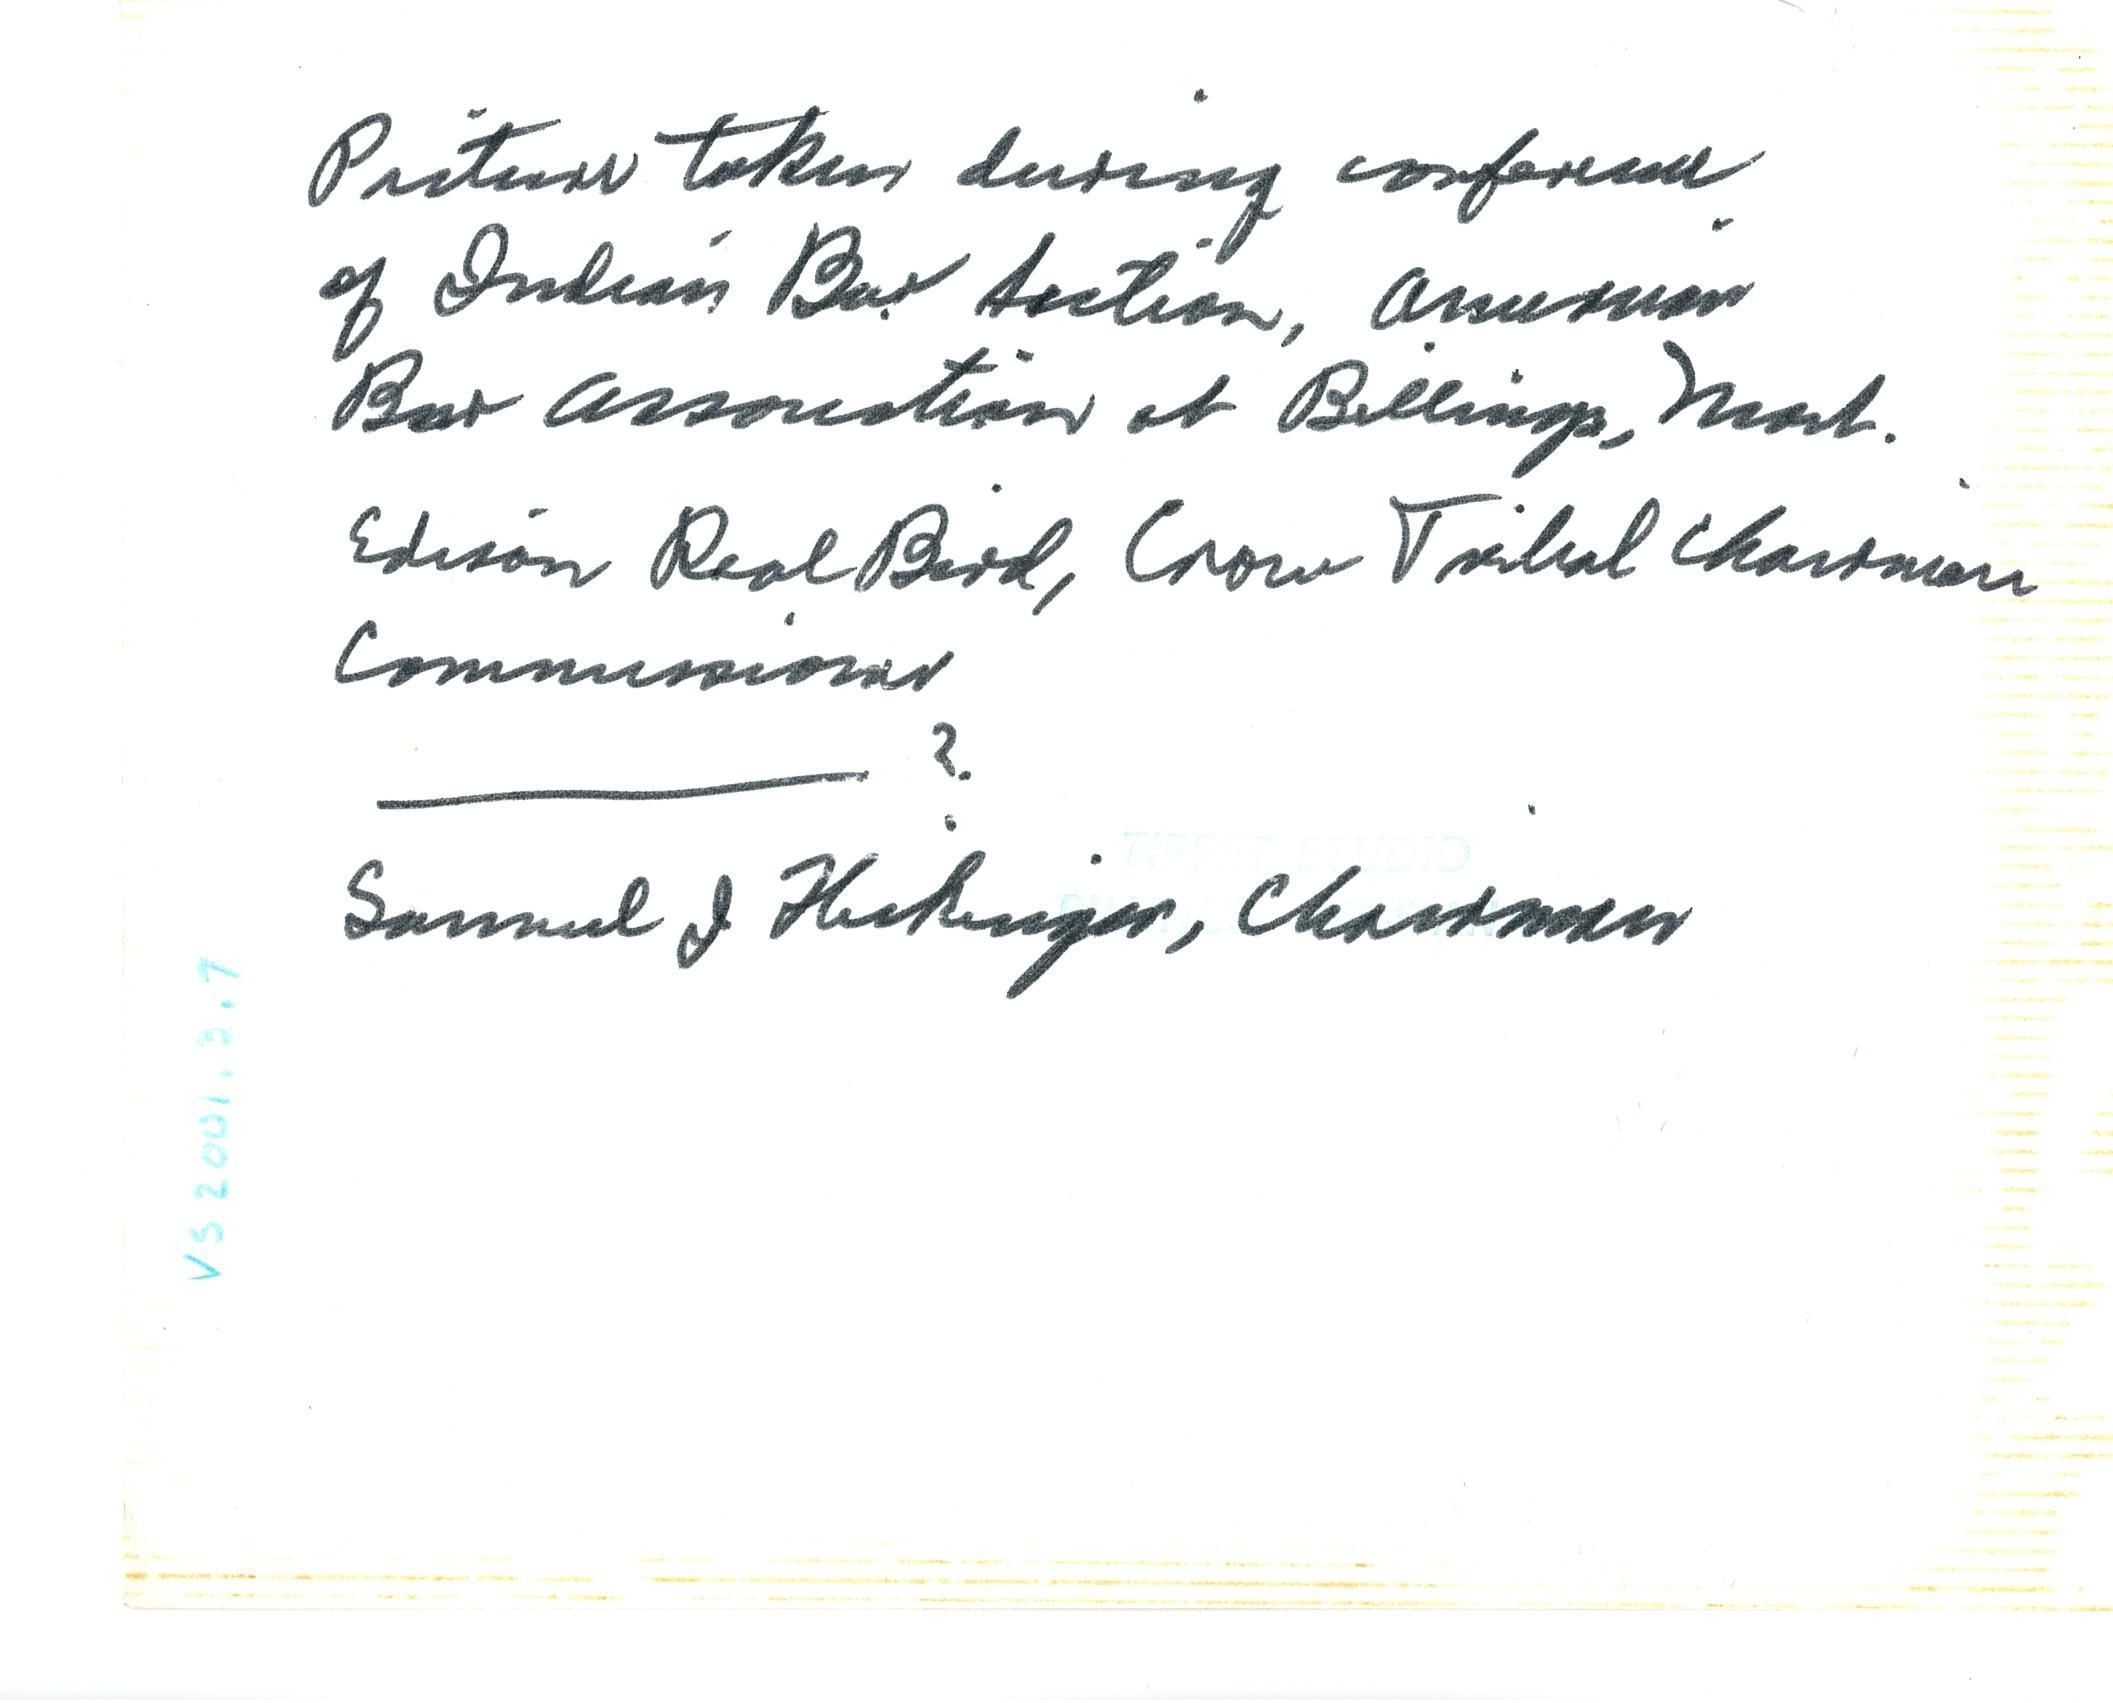 Picture taken during conference
of Indian Bar Section, American
Bar Association at Billings, Mont.
Edison Real Bird, Crow Tribal Chairman
Commissioner
?
Samuel J Flickinger, Chairman
VS 2001.3.7